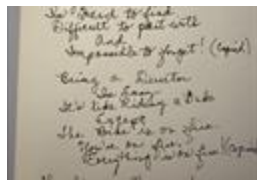 Is Hard to find
Difficult to part with
And
Impossible to forget! (Copied)
Being a Director
Is Easy
It's like Riding a Bike
Except
The Bike is on fire
You're on fire
Everything is on fire! (Copied)